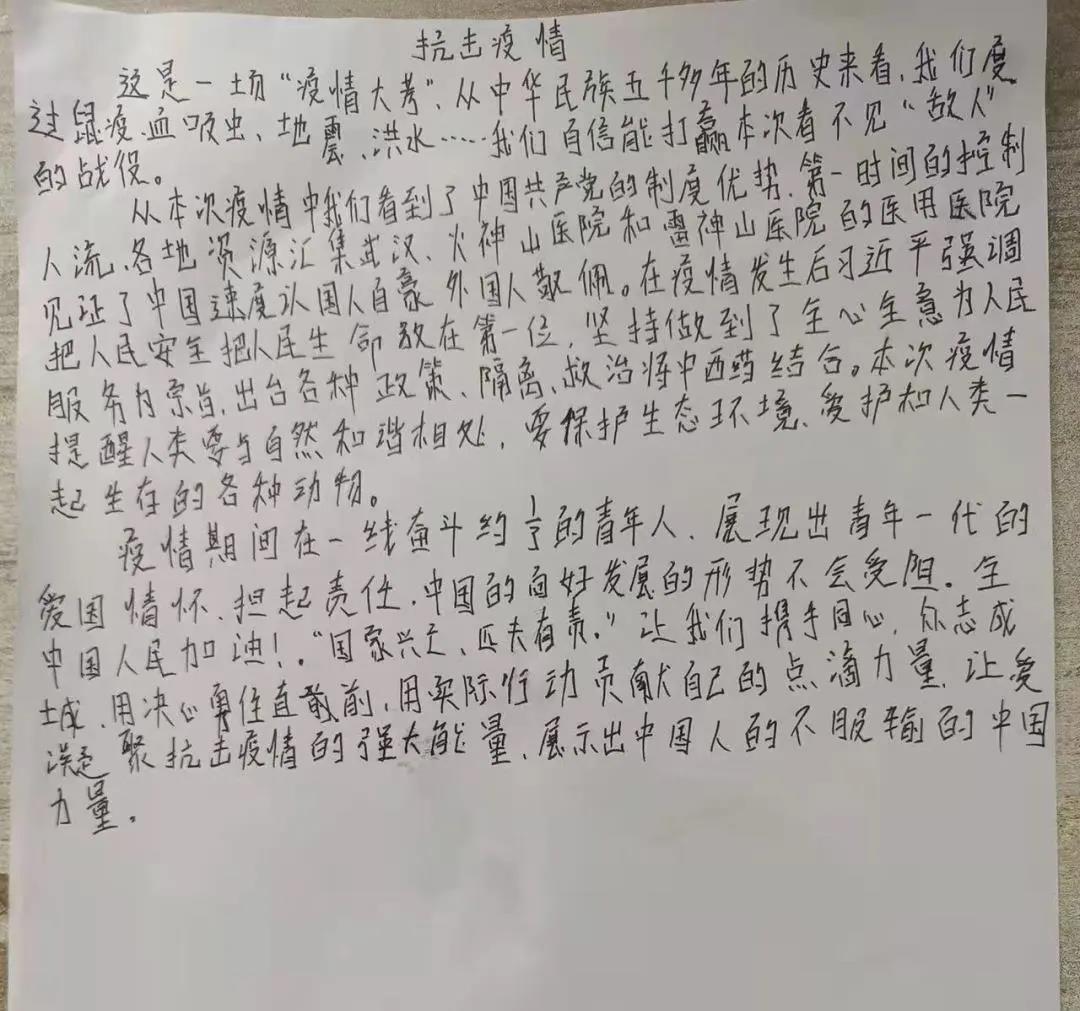 抗击疫情
这是一场“疫情大考”、从中华民族五千多年的历史来看、我们度
过鼠疫、血吸虫、地震、洪水……我们自信能打赢本次看不见“敌人”
的战役。
从本次疫情中我们看到了中国共产党的制度优势、第一时间的控制
人流、各地资源汇集武汉、火神山医院和雷神山医院的医用医院
见证了中国速度认国人自豪外国人敬佩。在疫情发生后习近平强调
把人民安全把人民生命放在第一位，坚持做到了全心全意为人民
服务为宗旨、出台各种政策、隔离、救治将中西药结合。本次疫情
提醒人类要与自然和谐相处，要保护生态环境、爱护和人类一
起生存的各种动物。
疫情期间在一线奋斗约的青年人、展现出青年一代的
爱国情怀、担起责任、中国的向好发展的形势不会受阻。全
中国人民加油！“国家兴亡、匹夫有责。”让我们携手同心，众志成
城、用决心勇往直前，用实际行动贡献自己的点滴力量、让爱
凝聚抗击疫情的强大能量、展示出中国人的不服输的中国
力量。